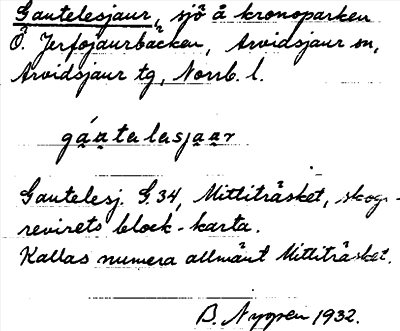 Gautelesjaur, sjö å kronoparken
Ö. Jerfojaurbäcken, Arvidsjaur sn,
Arvidsjaur tg, Norrb. l.
gáutelesjaur
Gautelesj. G.34, Mittiträsket, skogs-
revirets block-karta.
Kallas numera allmänt Mittiträsket.
B. Nygren 1932.